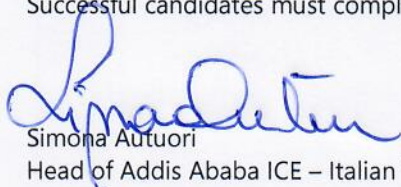 Successful candidates must compl
Simona Autuori
Head of Addis Ababa ICE – Italian